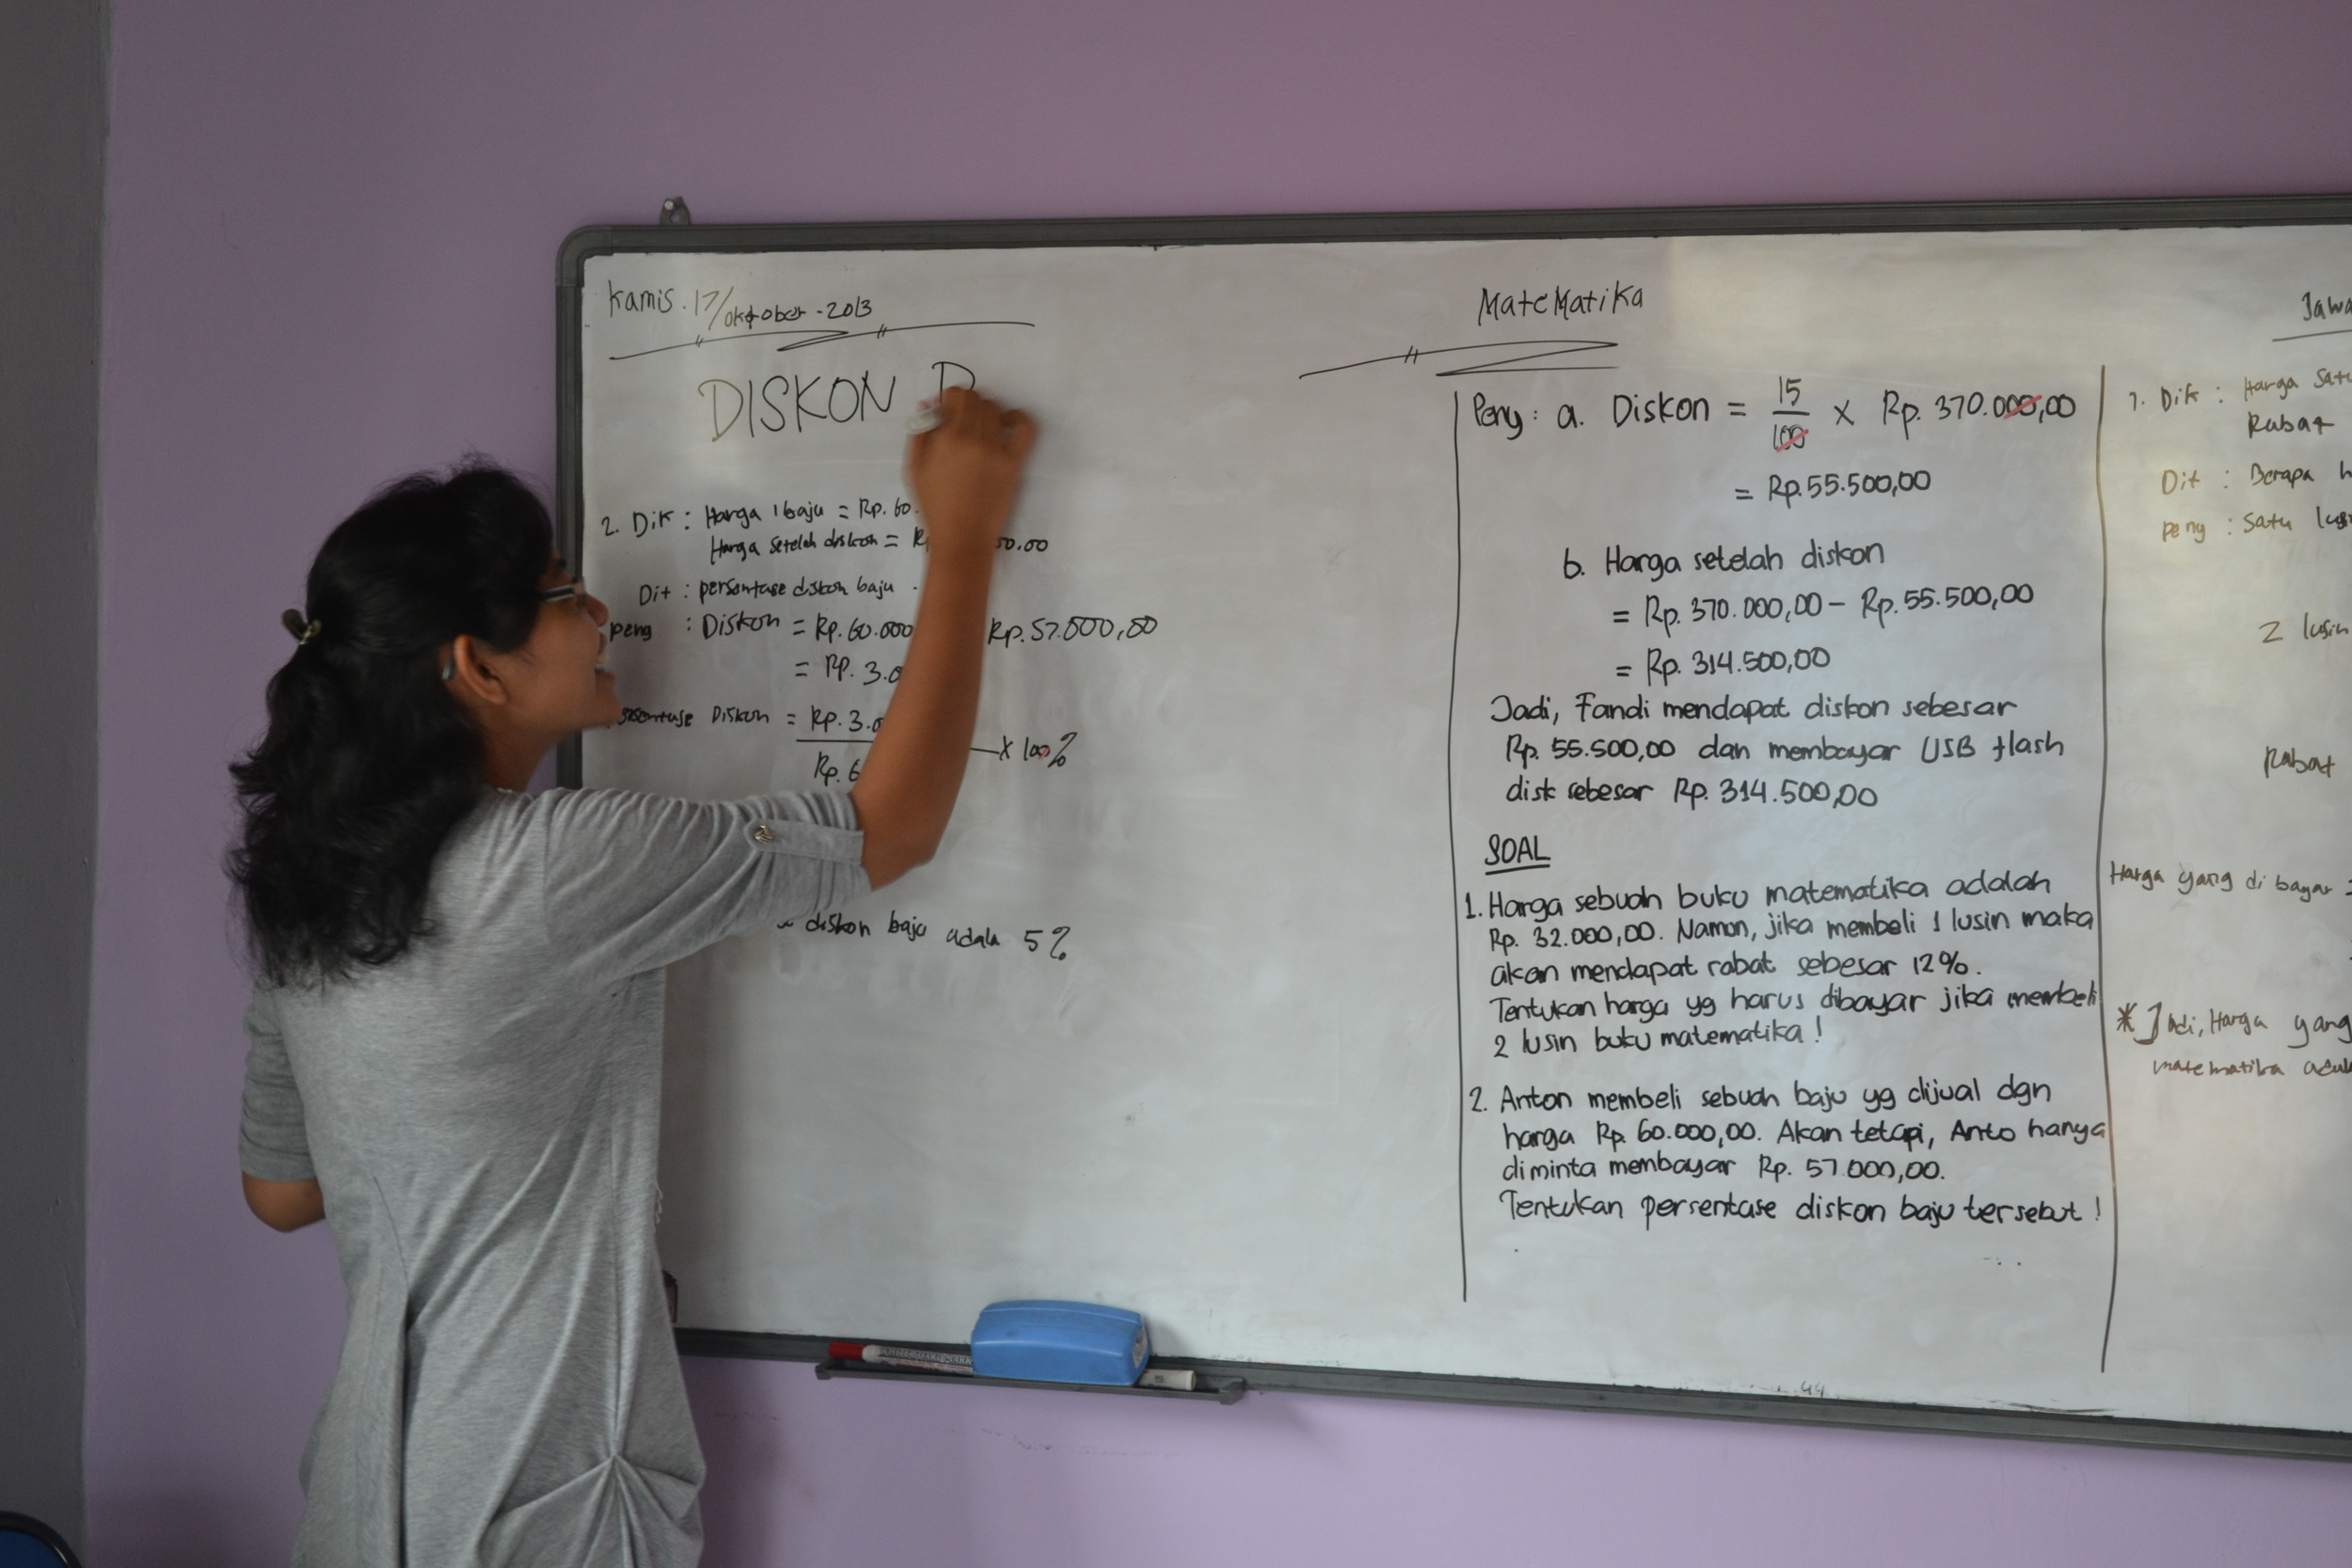 Kamis. 17/oktober-2013
Matematika
DISKON
2. Dik : Harga 1 baju = Rp. 60.
Harga setelah diskon = 50.00
Dit : persentase diskon baju
peng : Diskon = Rp. 60.000 Rp. 57.000,00
= Rp. 3.0
Diskon = Rp. 3.0
Rp. 6 x 100%
diskon baju adala 5%
Peny : a. Diskon = 15/100 x Rp. 370.000,00
= Rp. 55.500,00
b. Harga setelah diskon
= Rp. 370.000,00 - Rp. 55.500,00
= Rp. 314.500,00
Jadi, Fandi mendapat diskon sebesar
Rp. 55.500,00 dan membayar USB flash
disk sebesar Rp. 314.500,00
SOAL
1. Harga sebuah buku matematika adalah
Rp. 32.000,00. Namun, jika membeli 1 lusin maka
akan mendapat rabat sebesar 12%.
Tentukan harga yg harus dibayar jika membeli
2 lusin buku matematika !
2. Anton membeli sebuah baju yg dijual dgn
harga Rp. 60.000,00. Akan tetapi, Anto hanya
diminta membayar Rp. 57.000,00.
Tentukan persentase diskon baju tersebut !
Jawa
1. Dik : Harga Satu
Rabat
Dit : Berapa h
peny : Satu lusin
2 lusin
Rabat
Harga yang di bayar
* Jadi, Harga yang
matematika